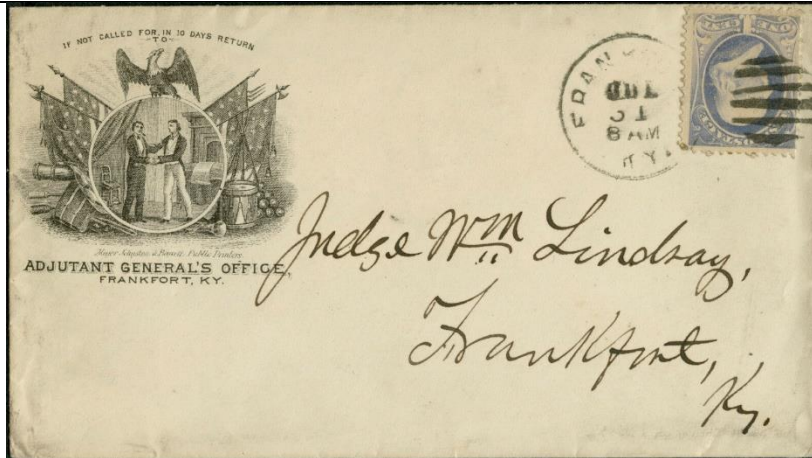 IF NOT CALLED FOR, IN 10 DAYS RETURN
—TO—
Major Johnston & Barrett, Public Printers
ADJUTANT GENERAL'S OFFICE,
FRANKFORT, KY.
FRANK
JUL
31
8 AM
KY.
Judge Wm Lindsay,
Frankfort,
Ky.